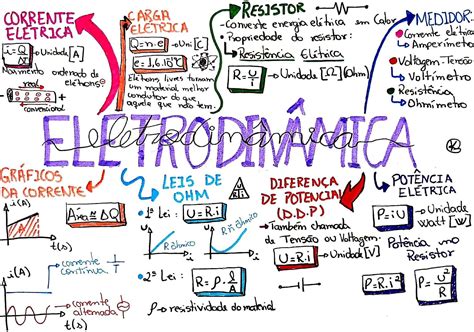 CORRENTE
ELÉTRICA
i = Q
Δt
→ Unidade [A]
Movimento ordenado de
elétrons
real
convencional
CARGA
ELÉTRICA
Q = n.e → Uni [C]
Elétrons livres tornam
um material melhor
condutor do que
aquele que não tem.
RESISTOR
- Converte energia elétrica em Calor
• Propriedade do resistor:
↳ Resistência Elétrica
→ Unidade [Ω] (Ohm)
MEDIDOR:
• Corrente elétrica
↳ Amperímetro
• Voltagem-Tensão
↳ Voltímetro
• Resistência
↳ Ohmímetro
ELETRODINÂMICA
eletrodinâmica
GRÁFICOS
DA CORRENTE
i(A)
Área ≅ ΔQ
t(s)
i(A)
corrente
contínua
corrente
alternada
t(s)
LEIS DE
OHM
• 1ª Lei: U = R.i
R ôhmico
R ñ ôhmico
• 2ª Lei: R = ρ . l
A
ρ → resistividade do material
DIFERENÇA
DE POTENCIAL
(D.D.P)
→ Também chamada
de Tensão ou Voltagem:
U = R.i → Unidade [V]
POTÊNCIA
ELÉTRICA
P = i.U → Unidade
Watt [W]
Potência no
Resistor
P = R.i²
P = U²
R